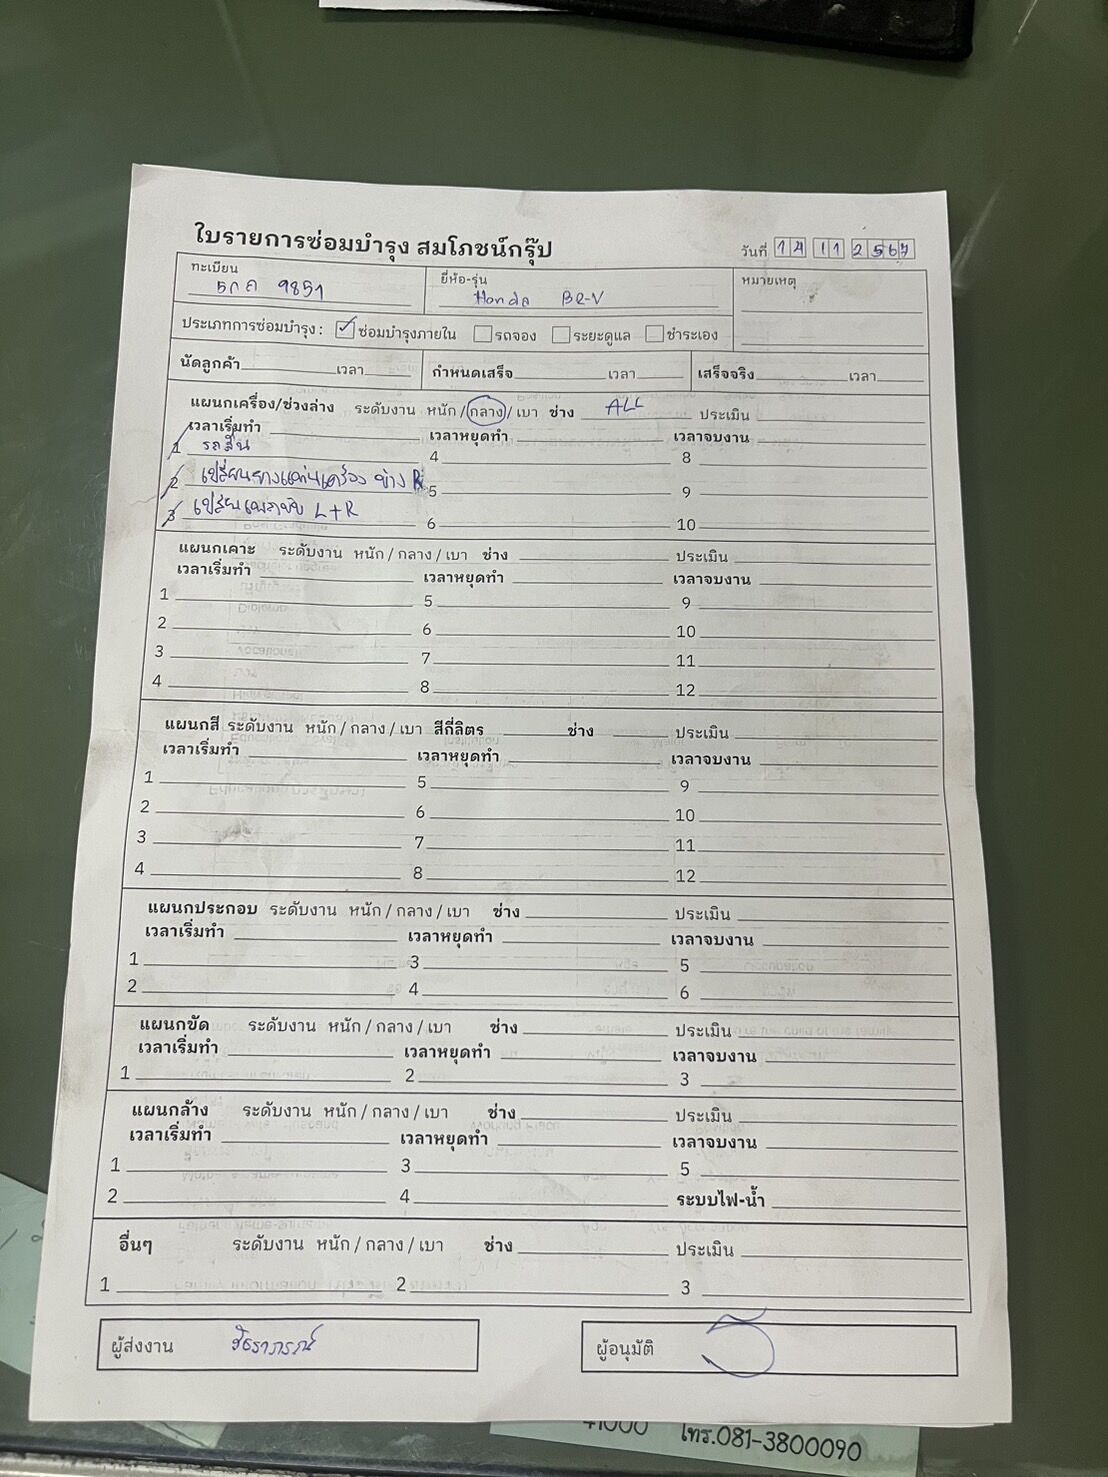 ใบรายการซ่อมบำรุง สมโภชน์กรุ๊ป
วันที่ 14 11 2567
ทะเบียน 5กค 9851
ยี่ห้อ-รุ่น Honda BR-V
หมายเหตุ
ประเภทการซ่อมบำรุง : ซ่อมบำรุงภายใน รถจอง ระยะดูแล ชำระเอง
นัดลูกค้า เวลา กำหนดเสร็จ เวลา เสร็จจริง เวลา
แผนกเครื่อง/ช่วงล่าง ระดับงาน หนัก / กลาง / เบา ช่าง ALL ประเมิน
เวลาเริ่มทำ เวลาหยุดทำ เวลาจบงาน
1 รถสั่น 4 8
2 เปลี่ยนยางแท่นเครื่อง ข้าง R 5 9
3 เปลี่ยนเพลาขับ L+R 6 10
แผนกเคาะ ระดับงาน หนัก / กลาง / เบา ช่าง ประเมิน
เวลาเริ่มทำ เวลาหยุดทำ เวลาจบงาน
1 5 9
2 6 10
3 7 11
4 8 12
แผนกสี ระดับงาน หนัก / กลาง / เบา สีกี่ลิตร ช่าง ประเมิน
เวลาเริ่มทำ เวลาหยุดทำ เวลาจบงาน
1 5 9
2 6 10
3 7 11
4 8 12
แผนกประกอบ ระดับงาน หนัก / กลาง / เบา ช่าง ประเมิน
เวลาเริ่มทำ เวลาหยุดทำ เวลาจบงาน
1 3 5
2 4 6
แผนกขัด ระดับงาน หนัก / กลาง / เบา ช่าง ประเมิน
เวลาเริ่มทำ เวลาหยุดทำ เวลาจบงาน
1 2 3
แผนกล้าง ระดับงาน หนัก / กลาง / เบา ช่าง ประเมิน
เวลาเริ่มทำ เวลาหยุดทำ เวลาจบงาน
1 3 5
2 4 ระบบไฟ-น้ำ
อื่นๆ ระดับงาน หนัก / กลาง / เบา ช่าง ประเมิน
1 2 3
ผู้ส่งงาน
ผู้อนุมัติ
41000 โทร.081-3800090